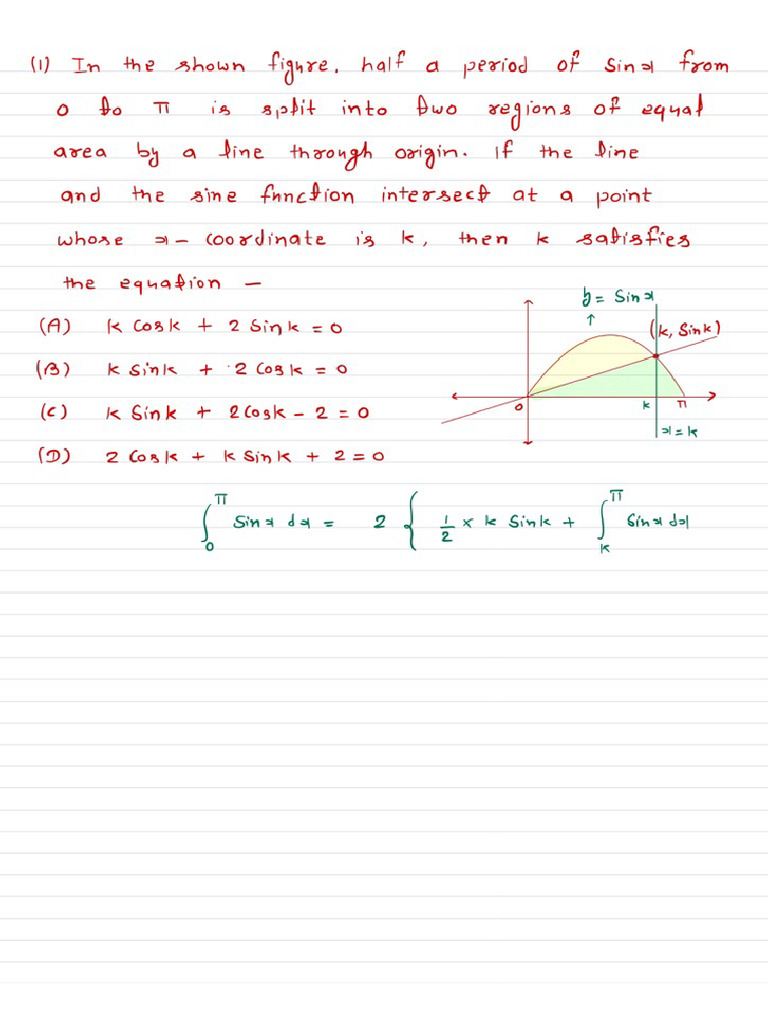 (1) In the shown figure, half a period of sin x from
0 to π is split into two regions of equal
area by a line through origin. If the line
and the sine function intersect at a point
whose x - coordinate is k, then k satisfies
the equation —
(A) k cosk + 2 sink = 0
(B) k sink + 2 cosk = 0
(C) k sink + 2cosk - 2 = 0
(D) 2 cosk + k sink + 2 = 0
y = sin x
↑
(k, sink)
0 k π
x = k
∫₀^π sin x dx = 2 { 1/2 × k sink + ∫ₖ^π sin x dx